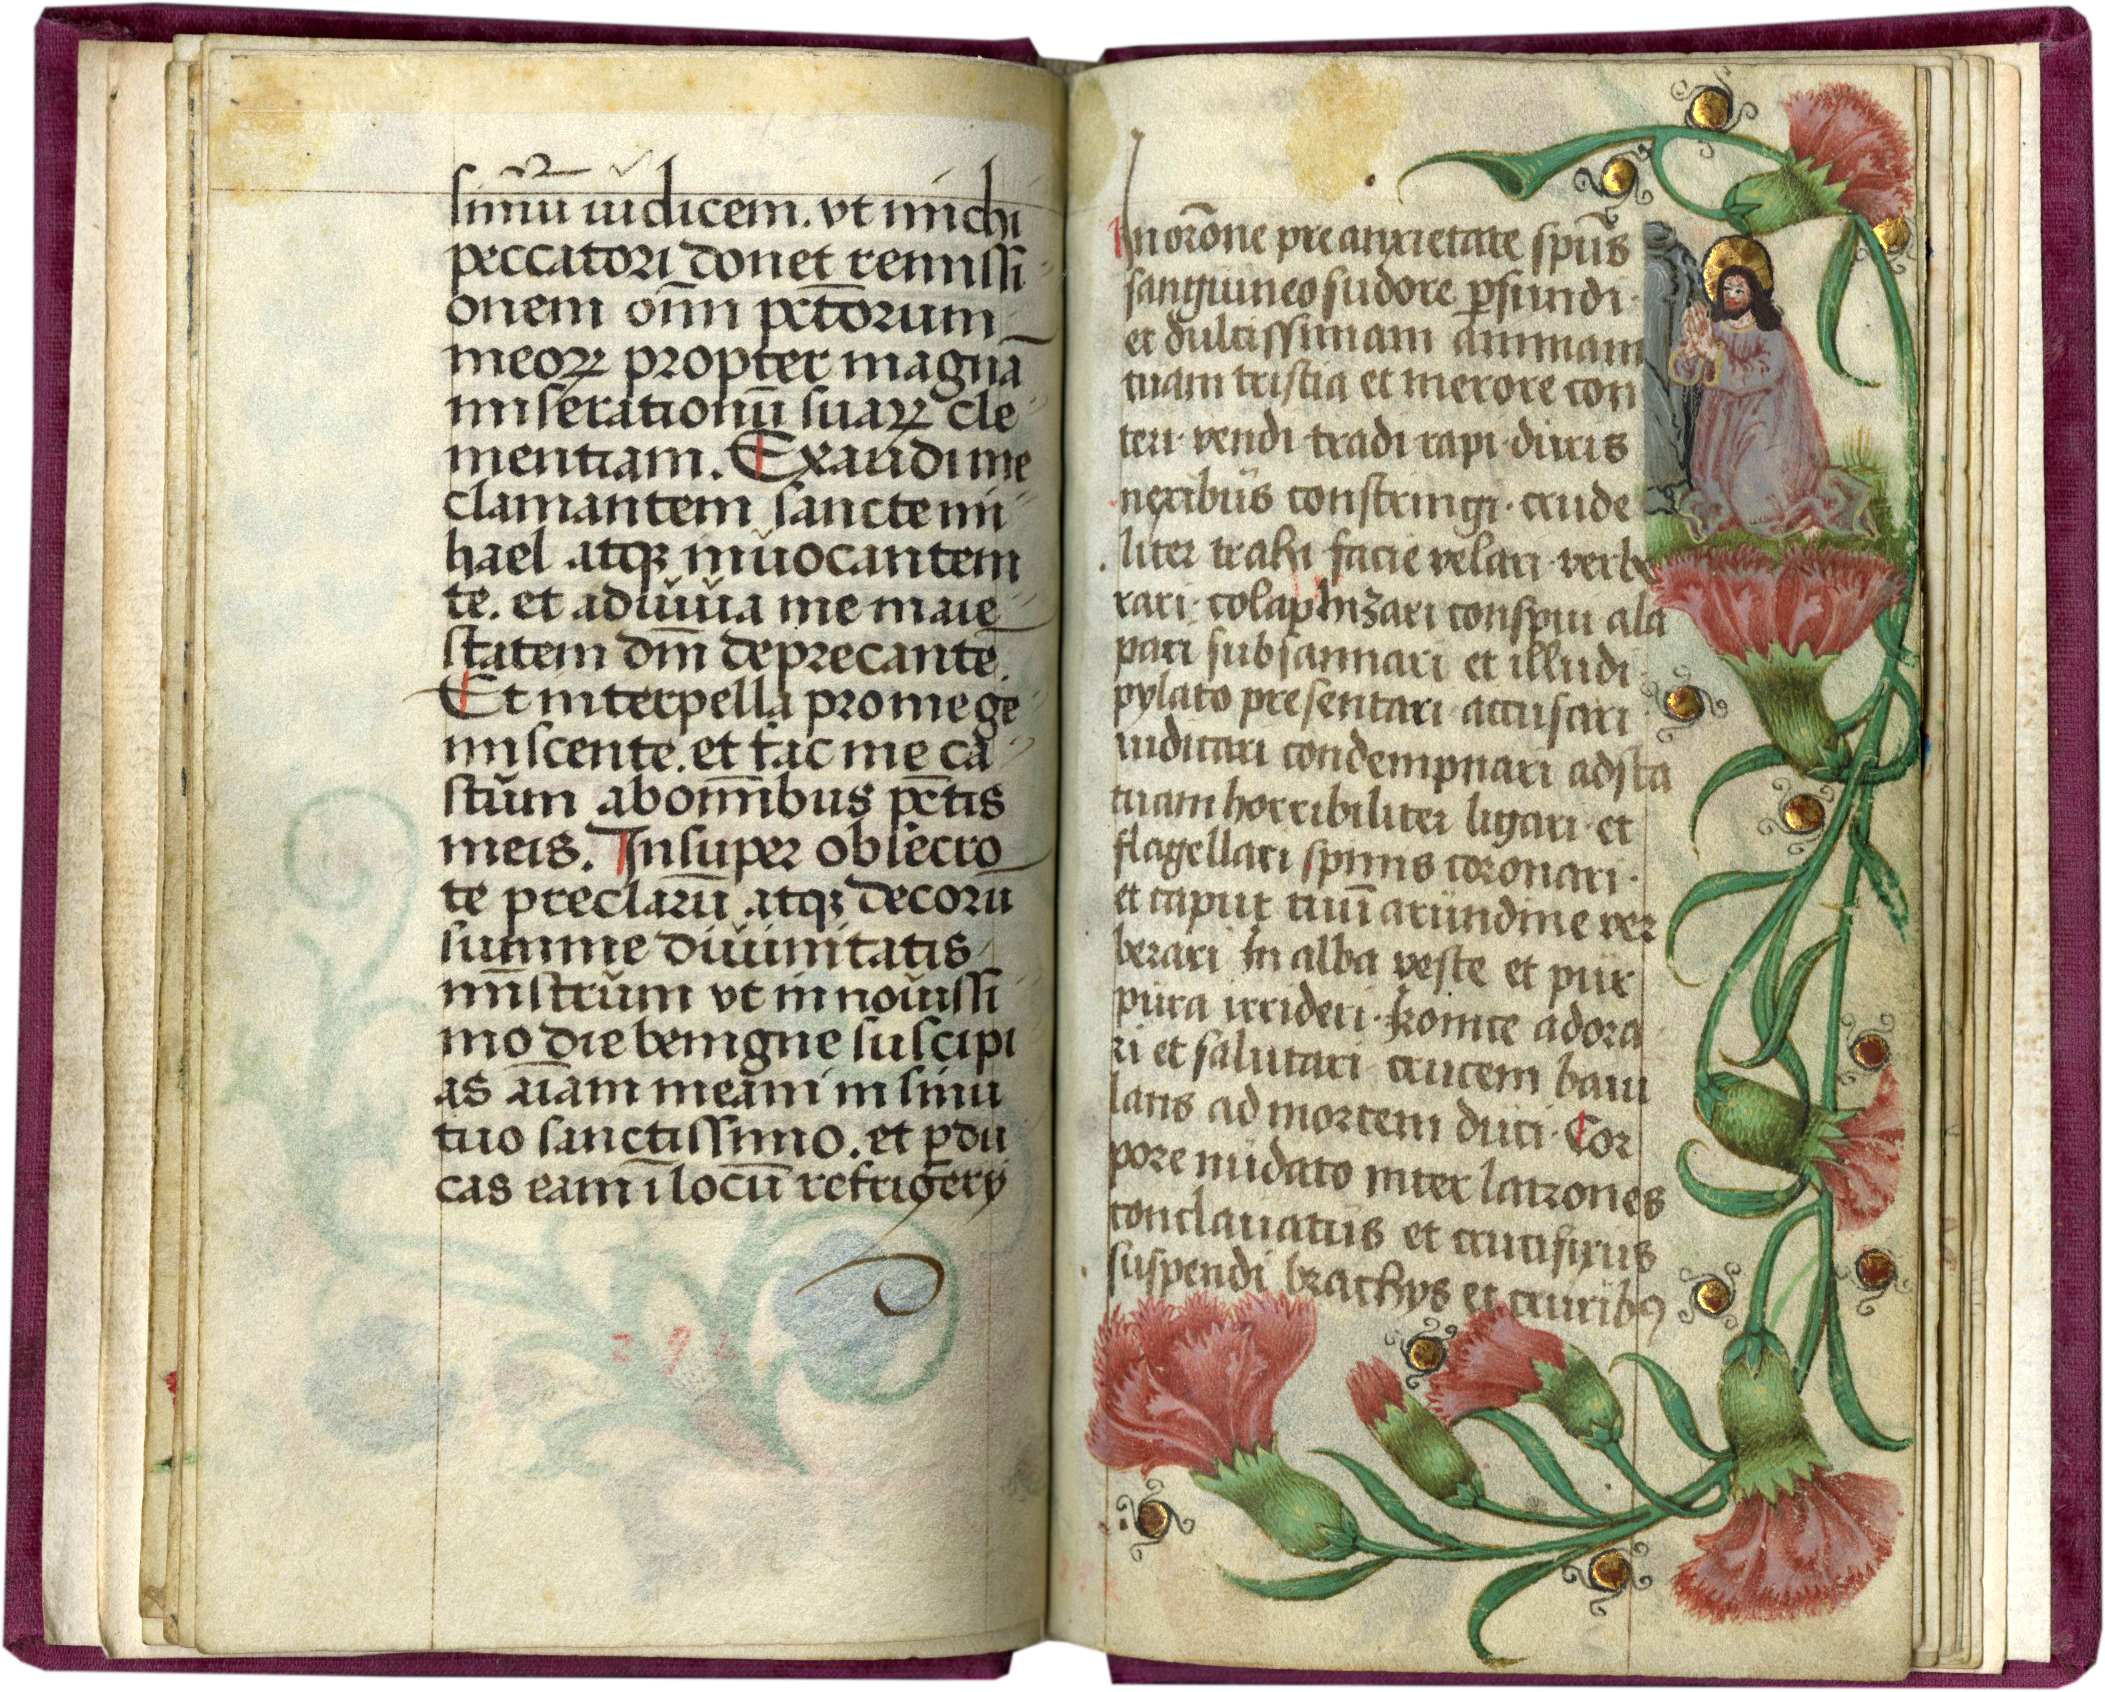 simū iudicem. vt michi
peccatori donet remissi
onem om̄ pctōrum
meoꝝ propter magnā
miserationū suaꝝ cle
mentiam. Exaudi me
clamantem sancte mi
hael atqꝫ inuocantem
te. et adiuua me maie
statem dm̄ deprecante.
Et interpella pro me ge
miscente. et fac me ca
stum ab om̄ibus pctis
meis. Insuper obsecro
te preclarū atqꝫ decorū
summe diuinitatis
mīstrum vt in nouissi
mo die benigne suscipi
as aīam meam in sinu
tuo sanctissimo. et ꝑdu
cas eam ī locū refrigerÿ
In orōne pre anxietate spūs
sanguineo sudore ꝑfundi ·
et dulcissimam animam
tuam tristia et merore con
teri · vendi · tradi · rapi · diuris
nexibus constringi · crude
liter trahi facie velari · verbe
rari · colaphizari conspui ala
pari subsannari et illudi ·
pylato presentari · accusari
iudicari condempnari ad sta
tuam horribiliter ligari · et
flagellari spinis coronari ·
et caput tuū arundine ver
berari In alba veste et pur
pura irrideri · Ironice adora
ri et salutari crucem baiu
lans ad mortem duci · Cor
pore nudato inter latrones
conclauatus et crucifixus
suspendi brachÿs et cruribꝰ
292